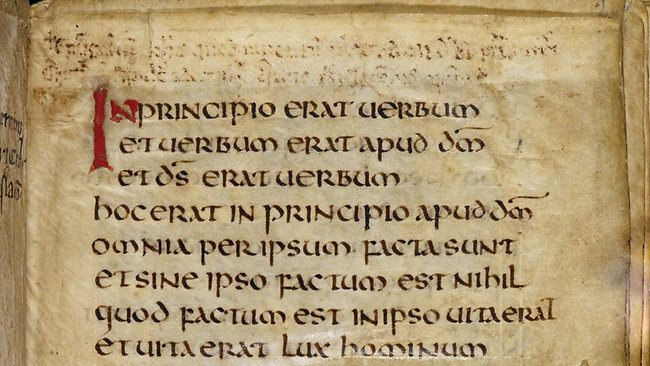 IN PRINCIPIO ERAT UERBUM
ET UERBUM ERAT APUD D̄M
ET D̄S ERAT UERBUM
HOC ERAT IN PRINCIPIO APUD D̄M
OMNIA PER IPSUM FACTA SUNT
ET SINE IPSO FACTUM EST NIHIL
QUOD FACTUM EST IN IPSO UITA ERAT
ET UITA ERAT LUX HOMINUM